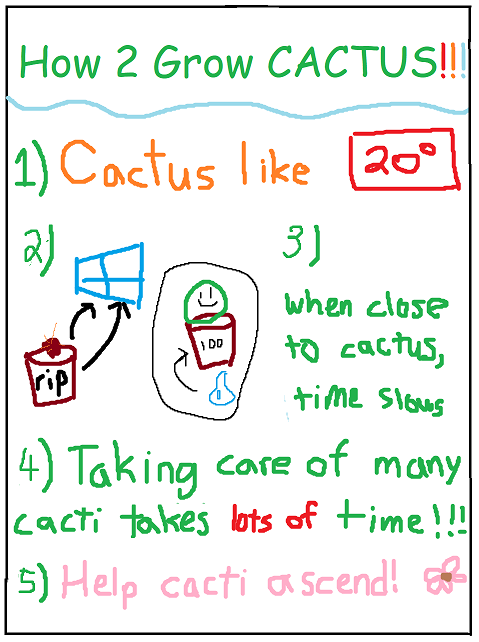 How 2 Grow CACTUS!!!
1) Cactus like 20°
2)
rip
100
3)
when close
to cactus,
time slows
4) Taking care of many
cacti takes lots of time!!!
5) Help cacti ascend!